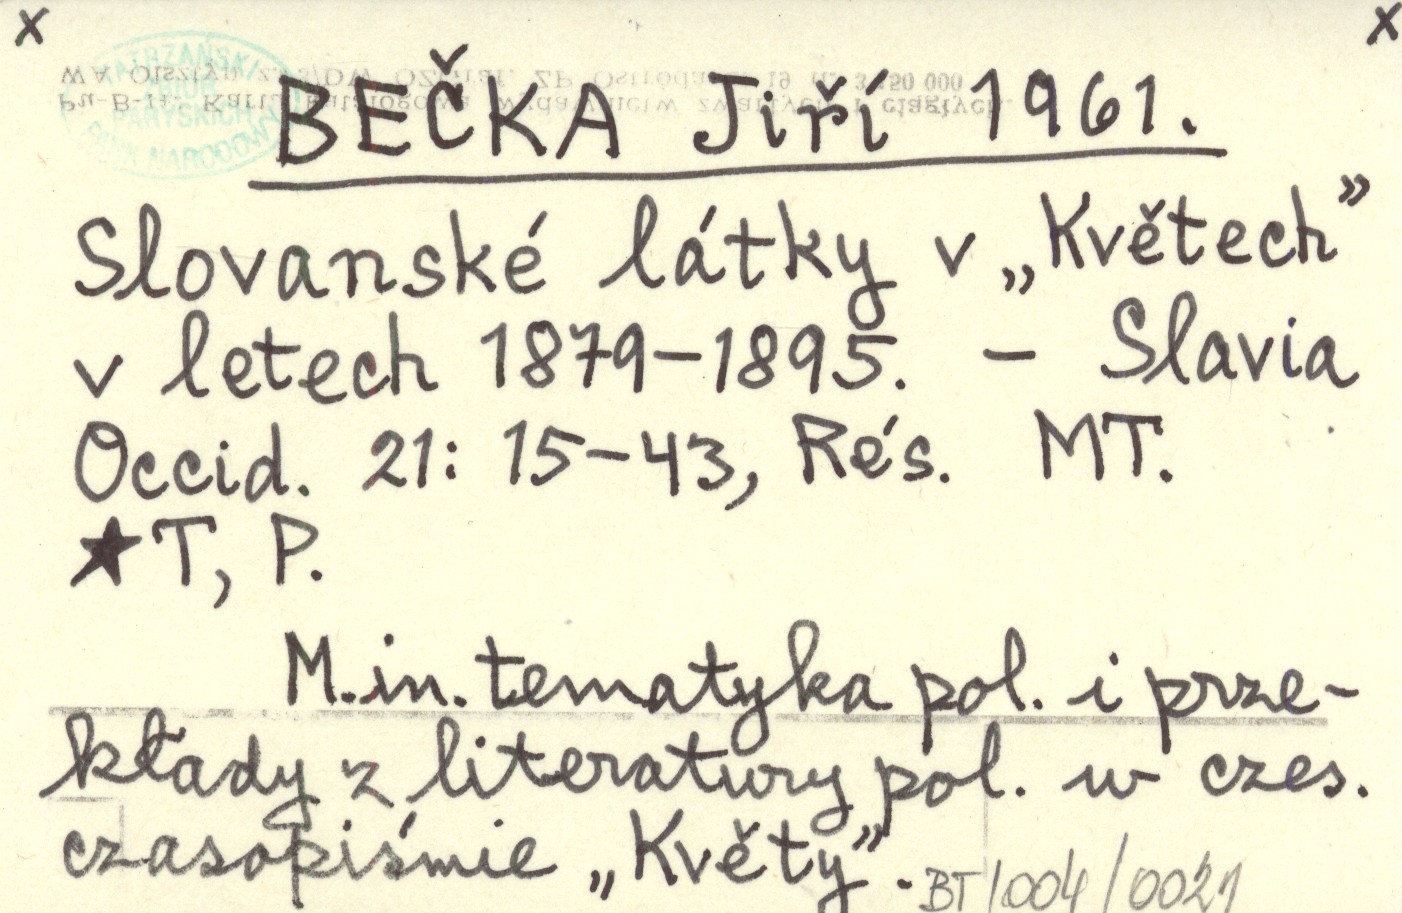 x x
BEČKA Jiří 1961.
Slovanské látky v „Květech”
v letech 1879–1895. – Slavia
Occid. 21: 15–43, Rés. MT.
★T, P.
M.in. tematyka pol. i prze-
kłady z literatury pol. w czes.
czasopiśmie „Květy”.
BT/004/0021